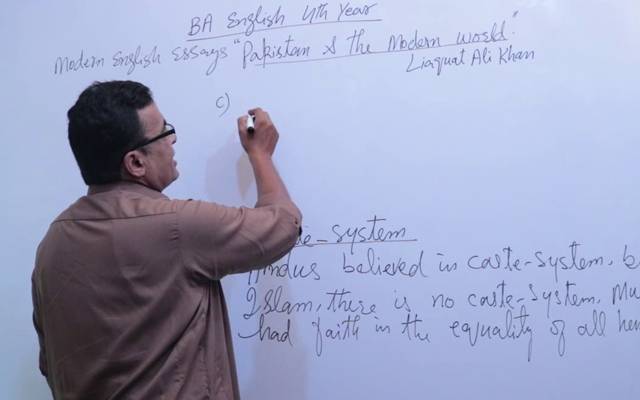 BA English 4th Year
Modern English Essays "Pakistan & the Modern World".
Liaquat Ali Khan
c)
e-System
Hindus believed in caste-system, b
Islam, there is no caste-system, Mu
had faith in the equality of all